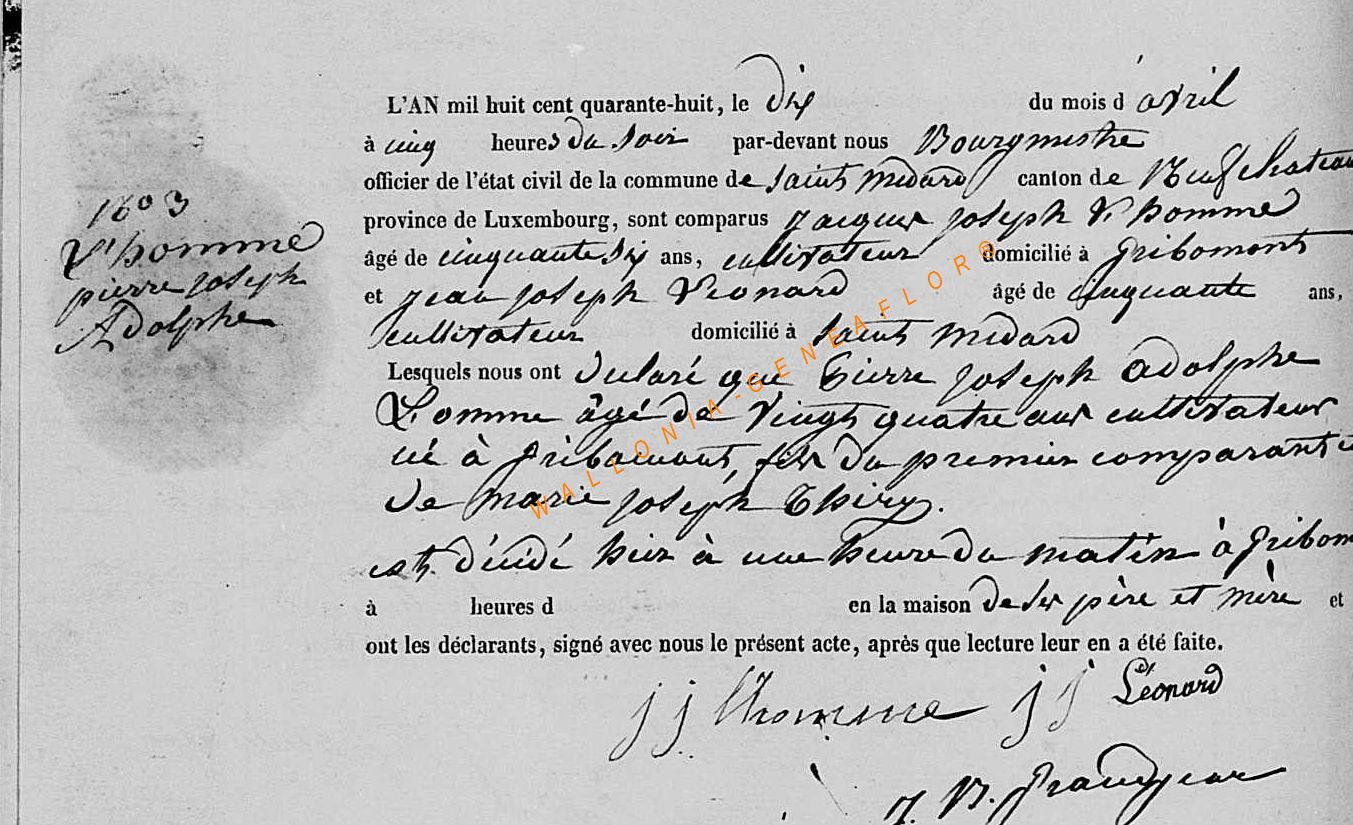 1803
L'homme
pierre joseph
Adolphe
L'AN mil huit cent quarante-huit, le dix du mois d'avril
à cinq heures du soir par-devant nous Bourgmestre
officier de l'état civil de la commune de Saint Medard canton de Neufchateau
province de Luxembourg, sont comparus Jacques joseph L'homme
âgé de cinquante six ans, cultivateur domicilié à Gribomont
et jean joseph Leonard âgé de cinquante ans,
cultivateur domicilié à Saint Medard
Lesquels nous ont déclaré que Pierre joseph adolphe
L'omme âgé de vingt quatre ans cultivateur
né à Gribomont, fils du premier comparant e
de marie joseph Thiry.
est décédé hier à une heure du matin à Gribom
à heures d en la maison de ses père et mère et
ont les déclarants, signé avec nous le présent acte, après que lecture leur en a été faite.
j j Lhomme j j Léonard
Grandjean
WALLONIA-GENEAFLOR®